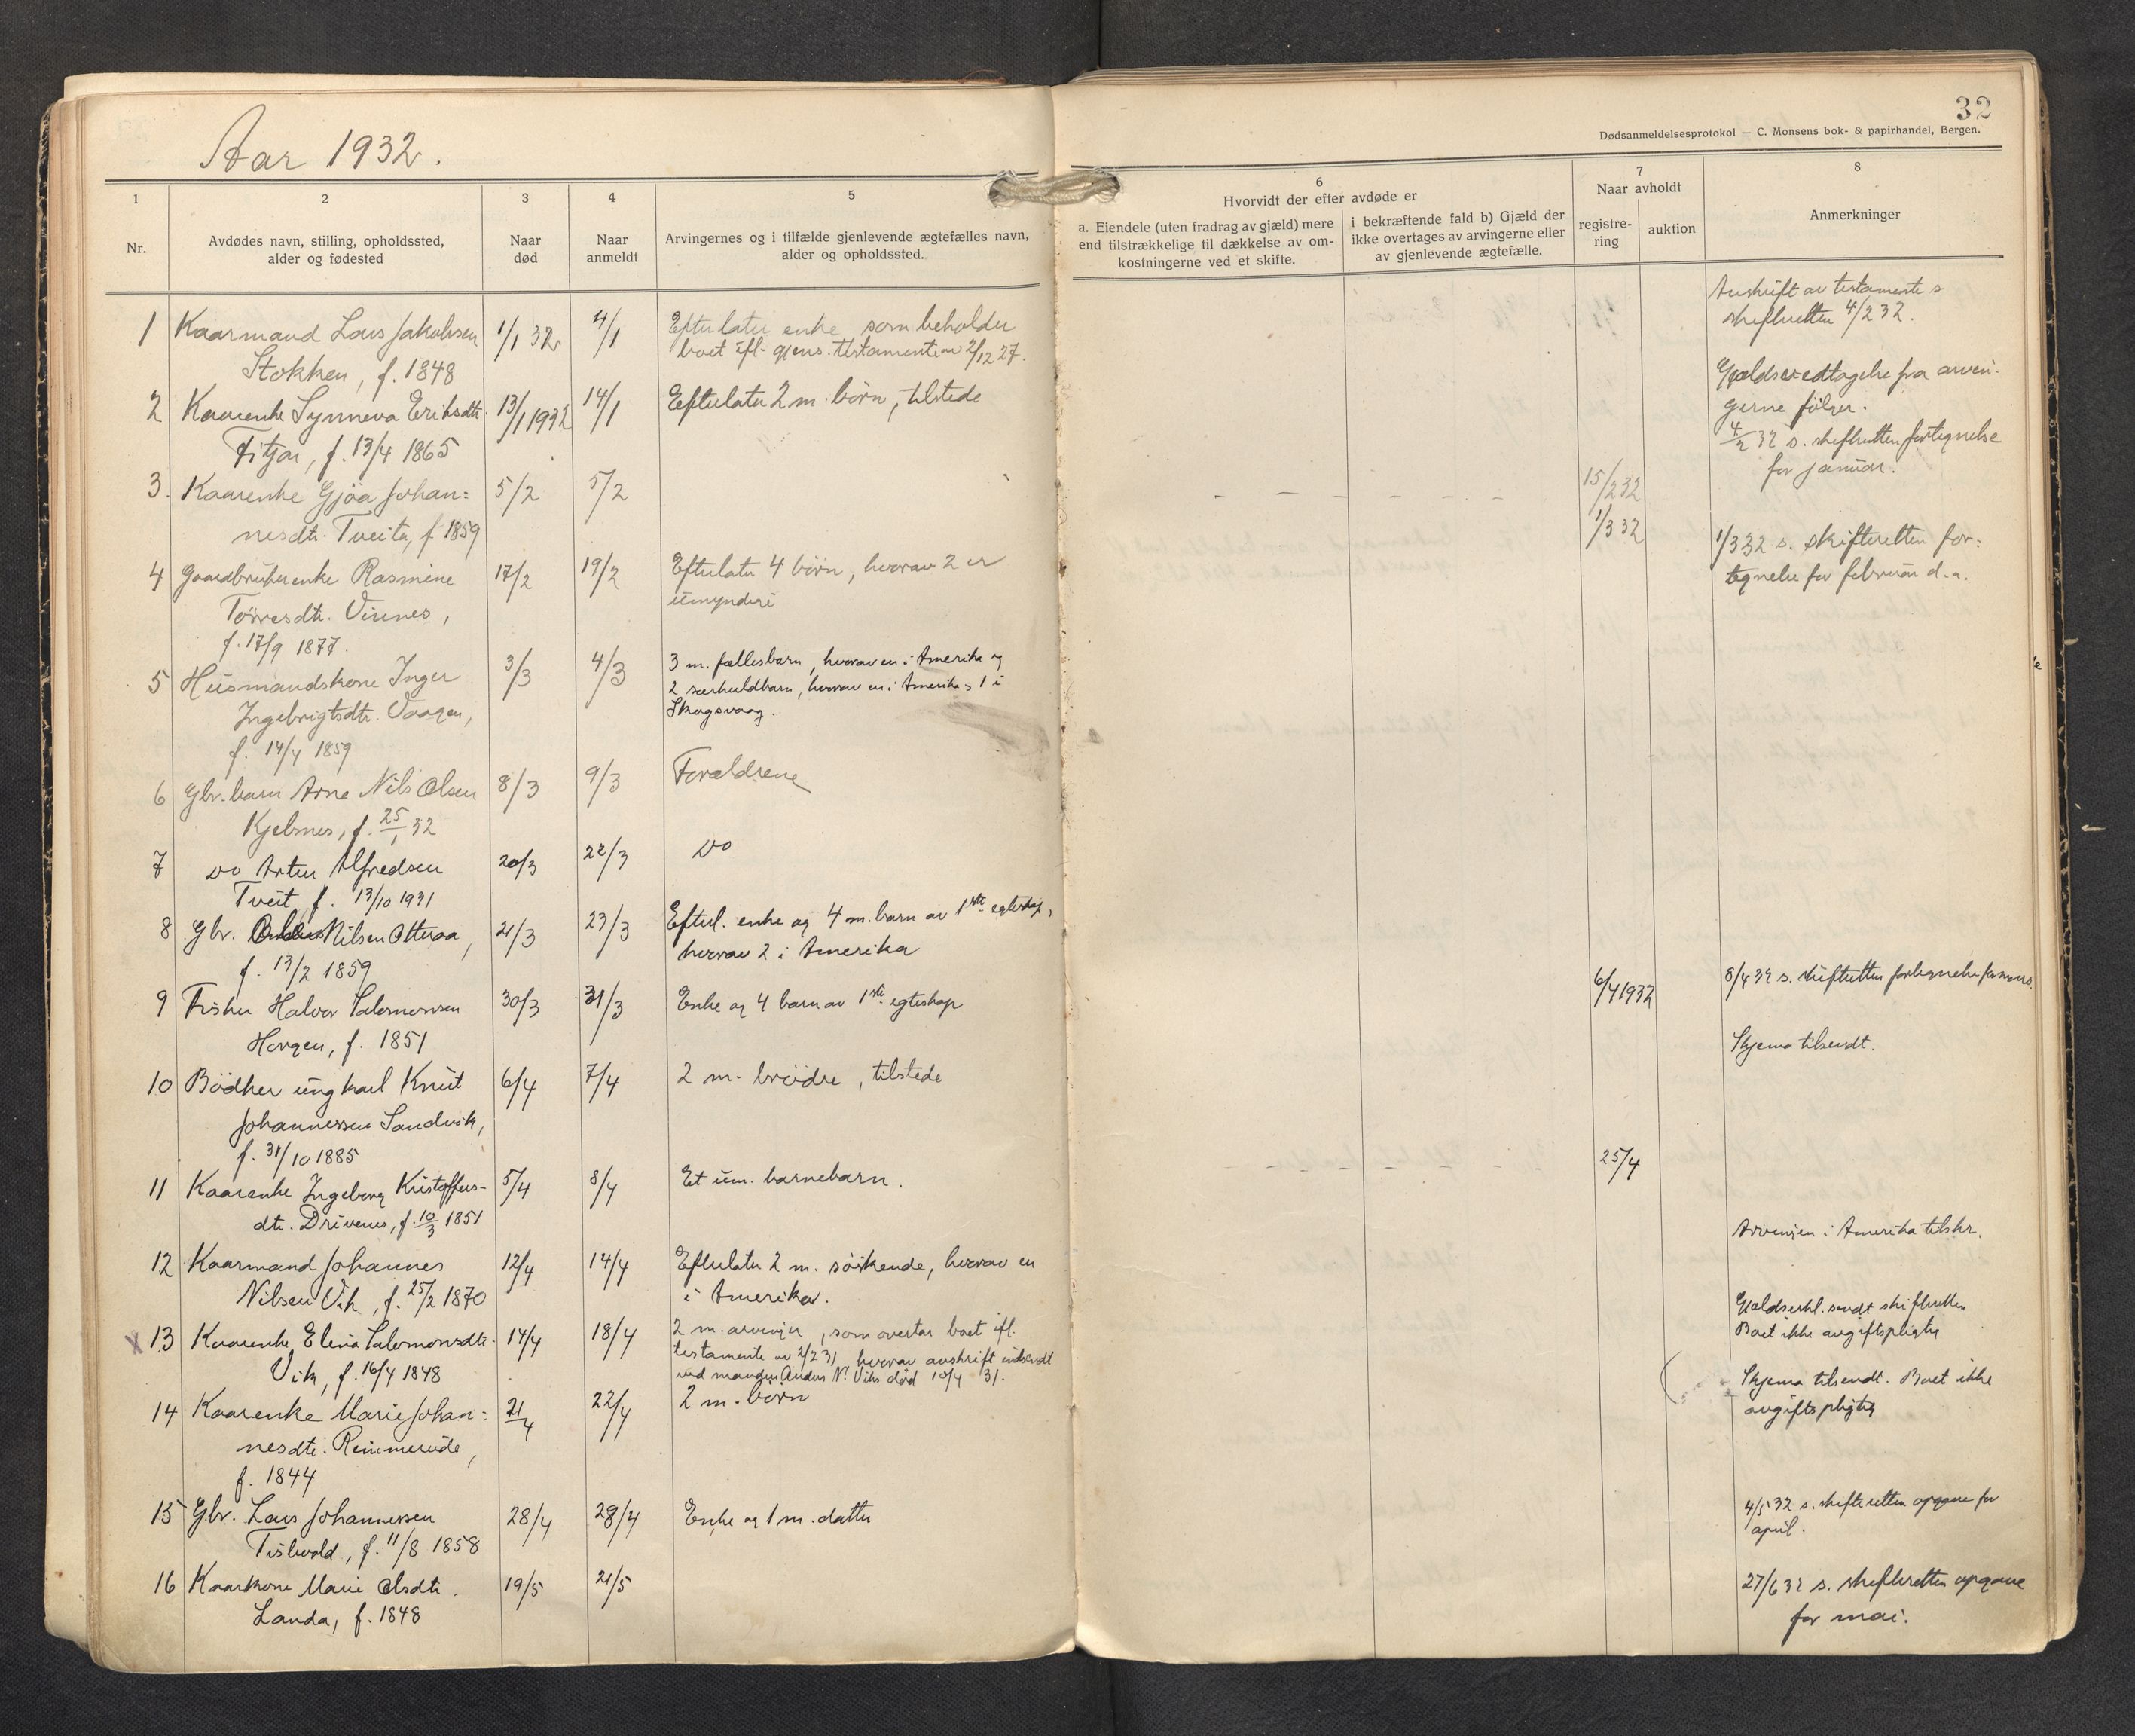 Aar 1932.
1
2
3
4
5
Nr.
Avdødes navn, stilling, opholdssted,
alder og fødested
Naar
død
Naar
anmeldt
Arvingernes og i tilfælde gjenlevende ægtefælles navn,
alder og opholdssted.
1 Kaarmand Lars Jakobsen 1/1 32 4/1 Efterlater enke, som beholder
Stokken, f. 1848 boet ifl. gjens. testamente av 2/12 27.
2 Kaarenke Synneva Eriksdtr. 13/1 1932 14/1 Efterlater 2 m. börn, tilstede
Fitjar, f. 13/4 1865
3. Kaarenke Gjöa Johan= 5/2 5/2
nesdtr. Tveita, f 1859
4 Gaardbrukerenke Rasmine 17/2 19/2 Efterlater 4 börn, hvorav 2 er
Torresdtr. Vinnes, umyndige
f. 17/9 1877.
5 Husmandskone Inger 3/3 4/3 3 m. fællesbarn, hvorav en i Amerika og
Ingebrigtsdtr. Vaagen, 2 særkuldbarn, hvorav en i Amerika, 1 i
f. 14/4 1859 Skogsvaag.
6 Gbr. barn Arne Nils Olsen 8/3 9/3 Forældrene
Kjelnes, f. 25/1 32
7 do Artur Alfredsen 20/3 22/3 do
Tveit, f. 13/10 1931
8 Gbr. Nilsen Otteraa, 21/3 23/3 Efterl. enke og 4 m. barn av 1ste egteskap,
f. 13/2 1859 hvorav 2 i Amerika
9 Fisker Halvor Salomonsen 30/3 31/3 Enke og 4 barn av 1ste egteskap
Horgen, f. 1851
10 Bödker ungkarl Knut 6/4 7/4 2 m. brödre, tilstede
Johannessen Sandvik,
f. 31/10 1885
11 Kaarenke Ingeborg Kristoffers- 5/4 8/4 Et um. barnebarn.
dtr. Drivenes, f. 10/3 1851
12 Kaarmand Johannes 12/4 14/4 Efterlater 2 m. söskende, hvorav en
Nilsen Vik, f. 25/2 1870 i Amerika.
x 13 Kaarenke Elena Salomonsdtr. 14/4 18/4 2 m. arvinger, som overtar boet ifl.
Vik, f. 16/4 1848 testamente av 2/2 31, hvorav avskrift indsendt
ved manden Anders N. Viks död 10/4 31.
14 Kaarenke Marie Johan= 21/4 22/4 2 m. börn
nesdtr. Remmereide,
f. 1844
15 Gbr. Lars Johannessen 28/4 28/4 Enke og 1 m. datter
Tislevold, f. 11/8 1858
16 Kaarkone Marie Olsdtr. 19/5 21/5
Landa, f. 1848
32
Dødsanmeldelsesprotokol — C. Monsens bok- & papirhandel, Bergen.
6
Hvorvidt der efter avdøde er
a. Eiendele (uten fradrag av gjæld) mere
end tilstrækkelige til dækkelse av om-
kostningerne ved et skifte.
i bekræftende fald b) Gjæld der
ikke overtages av arvingerne eller
av gjenlevende ægtefælle.
7
Naar avholdt
registre-
ring
auktion
8
Anmerkninger
Avskrift av testamente s.
skifteretten 4/2 32.
Gjældsvedtagelse fra arvin-
gerne følger.
4/2 32 s. skifteretten fortegnelse
for januar.
- - - - - - 15/2 32
1/3 32 1/3 32 s. skifteretten for=
tegnelse for februar d.a.
6/4 1932 8/4 32 s. skifteretten fortegnelse for mars.
Skjema tilsendt.
25/4
Arvingen i Amerika tilskr.
Gjældserkl. sendt skifteretten
Boet ikke avgiftspligtig
Skjema tilsendt. Boet ikke
avgiftspligtig
4/5 32 s. skifteretten opgave for
april.
27/6 32 s. skifteretten opgave
for mai.